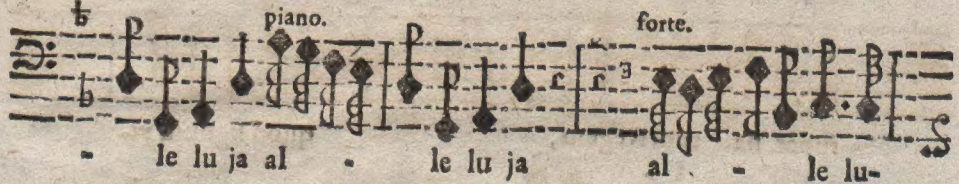 piano. forte.
- le lu ja al - le lu ja al - le lu-